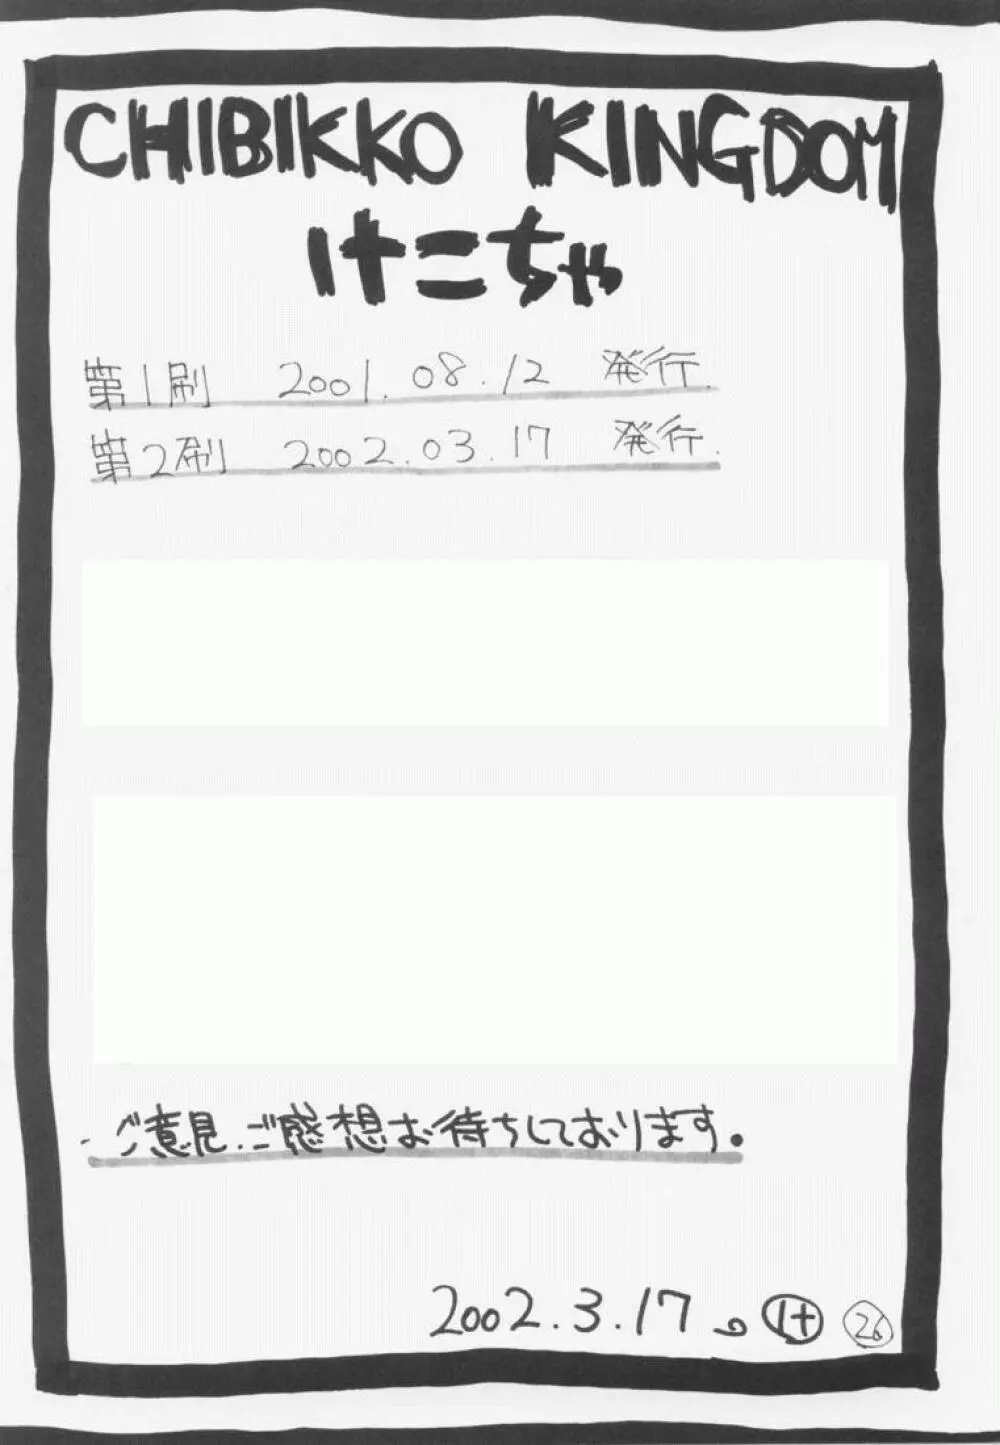 CHIBIKKO KINGDOM
けこちゃ
第1刷 2001.08.12 発行.
第2刷 2002.03.17 発行.
ご意見、ご感想お待ちしております。
2002.3.17 の け 26